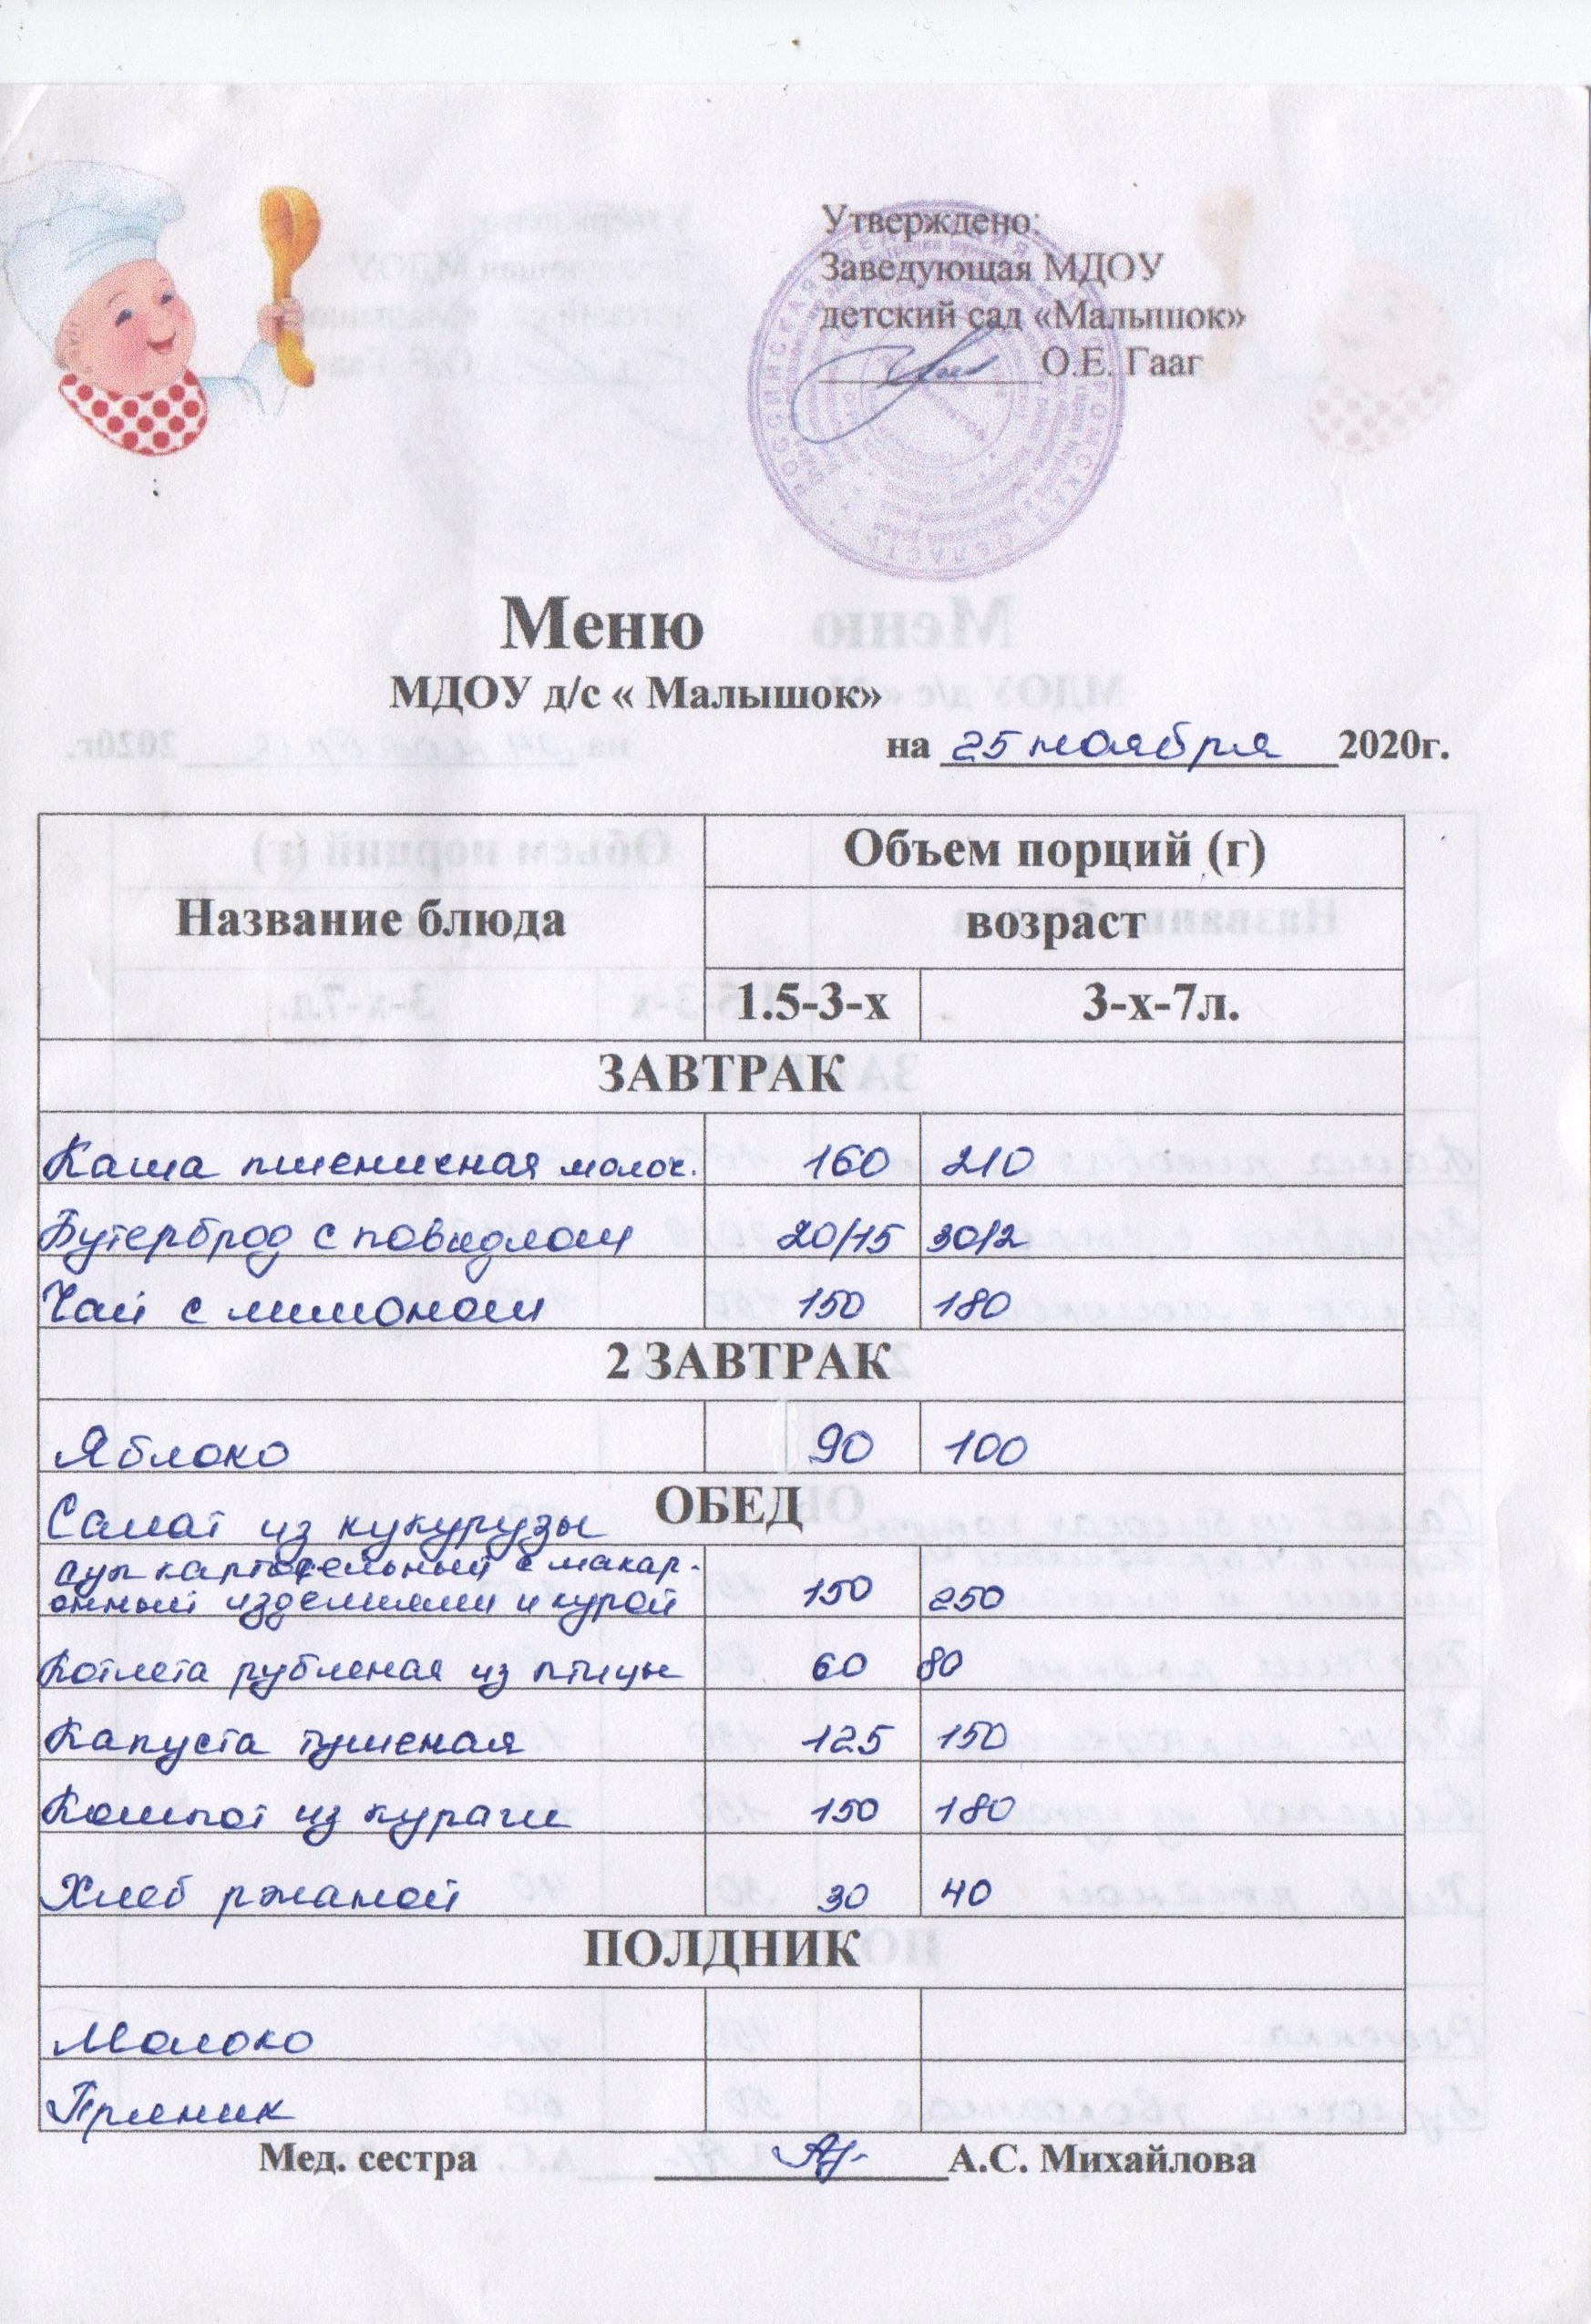 Утверждено:
Заведующая МДОУ
детский сад «Малышок»
О.Е. Гааг
Меню
МДОУ д/с « Малышок»
на 25 ноября 2020г.
Название блюда
Объем порций (г)
возраст
1.5-3-х 3-х-7л.
ЗАВТРАК
Каша пшеничная молоч. 160 210
Бутерброд с повидлом 20/15 30/2
Чай с лимоном 150 180
2 ЗАВТРАК
Яблоко 90 100
ОБЕД
Салат из кукурузы
суп картофельный с макар-
онный изделиями и курой 150 250
Котлета рубленая из птицы 60 80
Капуста тушеная 125 150
Компот из кураги 150 180
Хлеб ржаной 30 40
ПОЛДНИК
Молоко
Пряник
Мед. сестра А.С. Михайлова